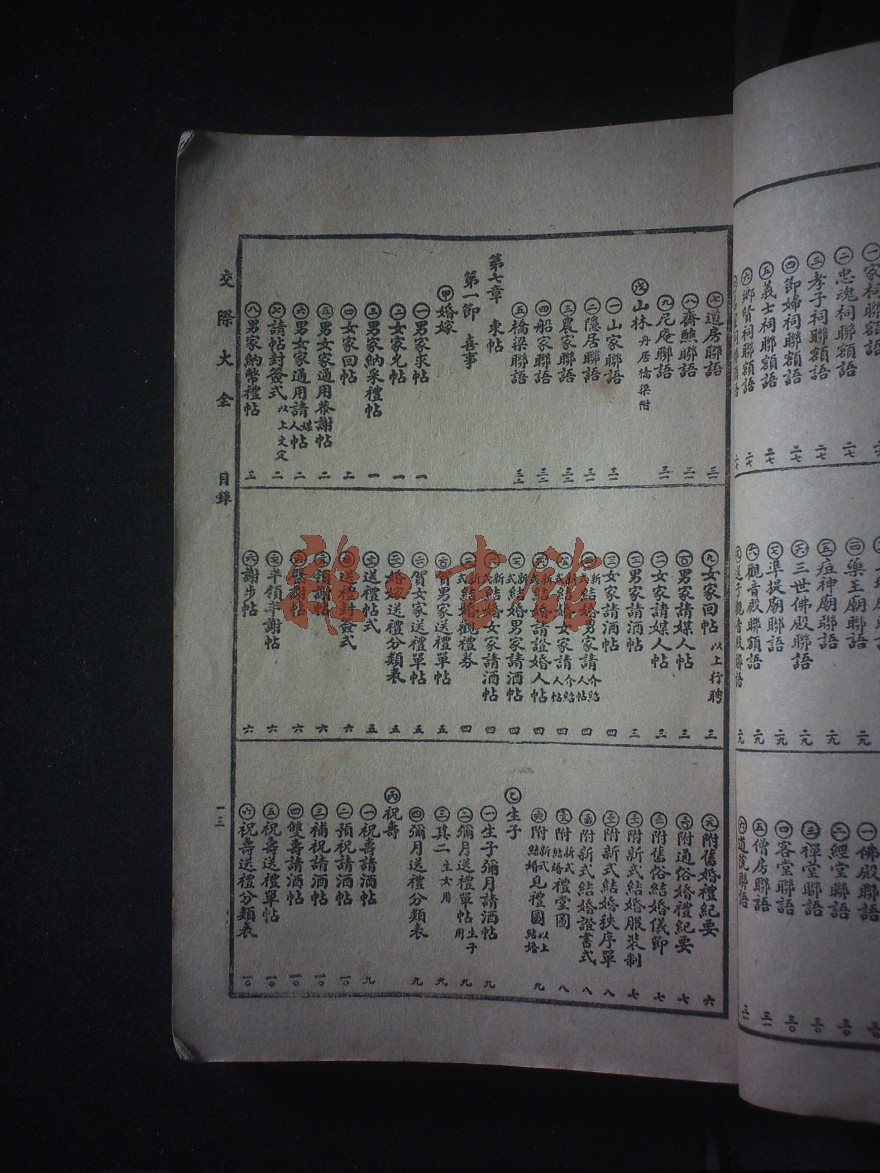 一家祠聯額語
二忠魂祠聯額語 二七
三孝子祠聯額語 二七
四節婦祠聯額語 二七
五義士祠聯額語 二七
六鄉賢祠聯額語 二七
藥王廟聯語 二九
五痘神廟聯語 二九
三世佛殿聯語 二九
準提廟聯語 二九
六觀音殿聯額語 二九
一佛殿聯語 三〇
二經堂聯語 三〇
三禪堂聯語 三〇
四客堂聯語 三〇
五僧房聯語 三一
六道院聯語 三一
七道房聯語 三一
八齋醮聯語 三一
九尼庵聯語 三一
戊山林 丹居橋梁附
一山家聯語 三一
二隱居聯語 三一
三農家聯語 三二
四船家聯語 三二
五橋梁聯語 三二
第七章 柬帖
第一節 喜事
甲婚嫁
一男家求帖 一
二女家允帖 一
三男家納采禮帖 一
四女家回帖 二
五男女家通用恭謝帖 二
六男女家通用請媒人帖 二
七請帖封簽式 以上文定 二
八男家納幣禮帖 三
九女家回帖 以上行聘 三
一〇男家請媒人帖 三
二女家請媒人帖 三
三男家請酒帖 三
三女家請酒帖 四
新式結婚男家請介紹人帖 四
新式結婚女家請介紹人帖 四
新式結婚請證婚人帖 四
新式結婚男家請酒帖 四
新式結婚女家請酒帖 四
新式結婚觀禮券 四
賀男家送禮單帖 五
賀女家送禮單帖 五
婚嫁送禮分類表 五
送禮帖式 五
送禮封簽式 六
領謝帖 六
璧謝帖 六
半領半謝帖 六
謝步帖 六
附舊婚禮紀要 六
附通俗婚禮紀要 七
附舊俗結婚儀節 七
附新式結婚服裝制 七
附新式結婚秩序單 八
附新式結婚證書式 八
附新式結婚禮堂圖 八
附新式結婚見禮圖 以上結婚 九
乙生子
一生子彌月請酒帖 九
二彌月送禮單帖 生子用 九
三其二 生女用 九
四彌月送禮分類表 九
丙祝壽
一祝壽請酒帖 九
二預祝請酒帖 一〇
三補祝請酒帖 一〇
四雙壽請酒帖 一〇
五祝壽送禮單帖 一〇
六祝壽送禮分類表 一〇
交際大全 目錄
一三
龍口書館